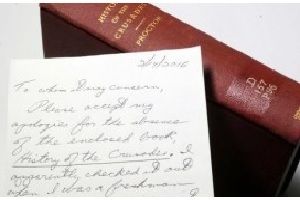 HISTORY
OF THE
CRUSADES
PROCTOR
D
157
P96
To whom it may concern,
Please accept my
apologies for the absence
of the enclosed book,
History of the Crusades. I
apparently checked it out
when I was a freshman